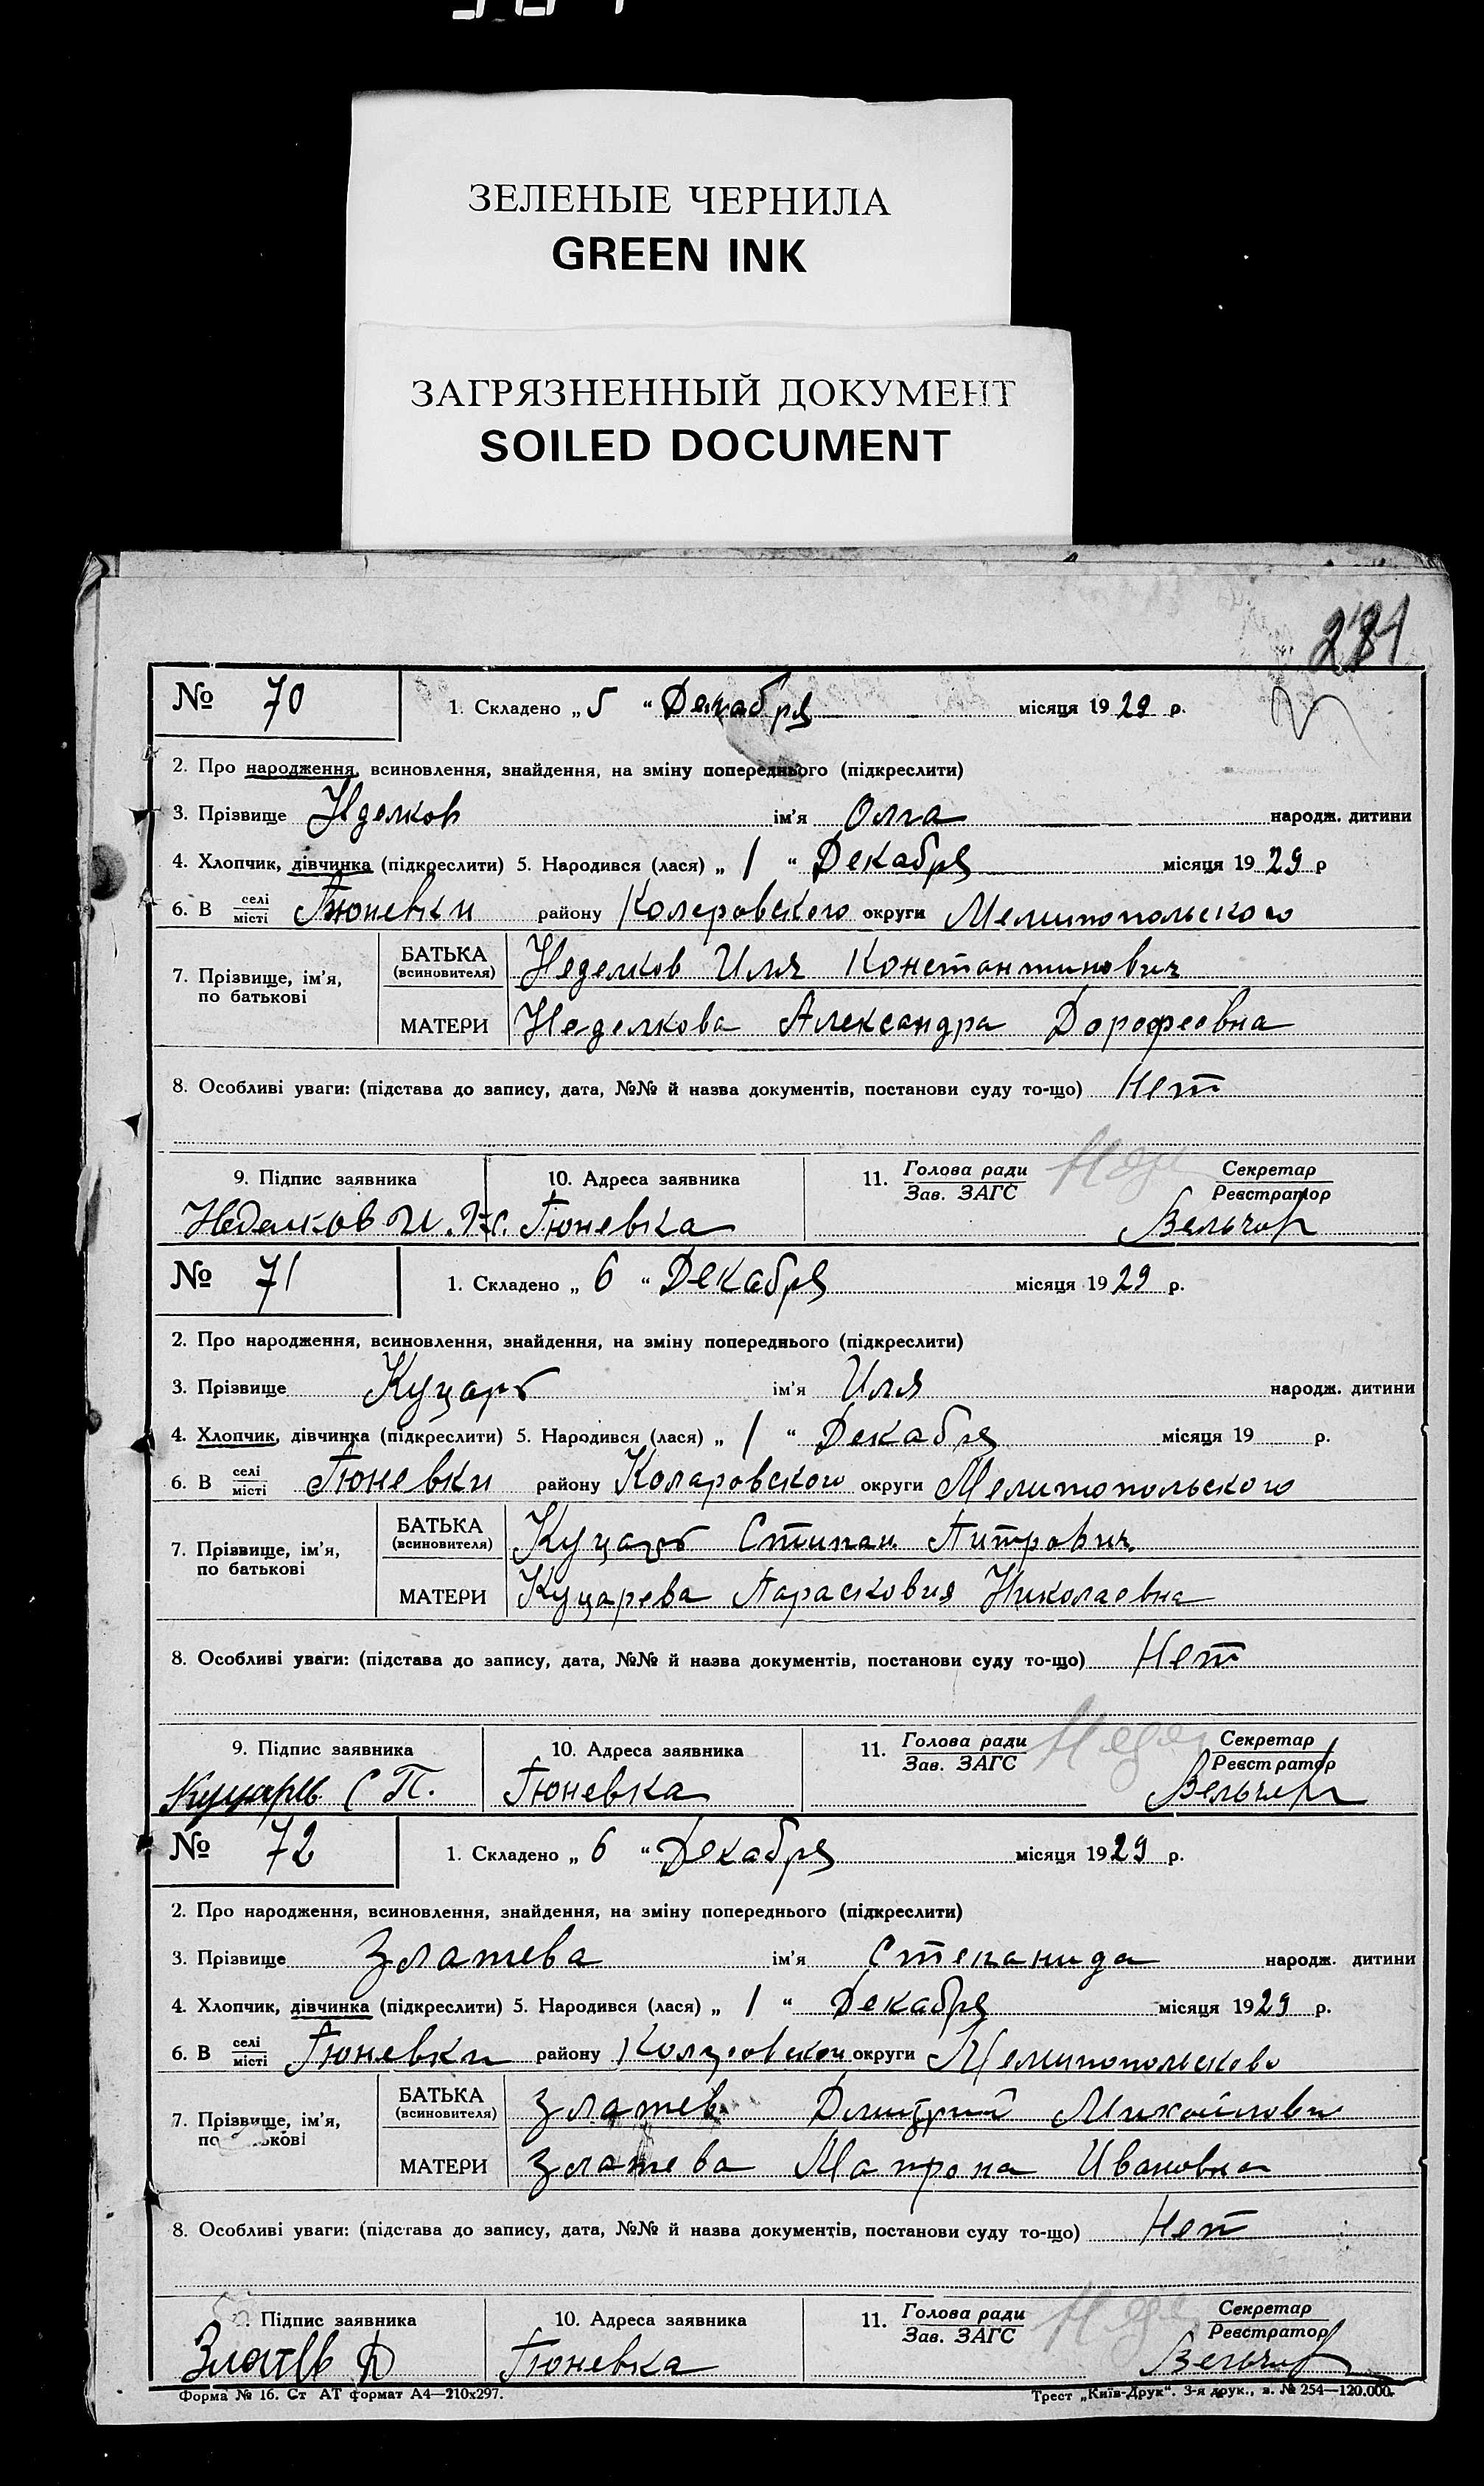 ЗЕЛЕНЫЕ ЧЕРНИЛА
GREEN INK
ЗАГРЯЗНЕННЫЙ ДОКУМЕНТ
SOILED DOCUMENT
№ 70 1. Складено „ 5 “ Декабря місяця 1929 р.
2. Про народження, всиновлення, знайдення, на зміну попереднього (підкреслити)
3. Прізвище Нделков ім'я Олга народж. дитини
4. Хлопчик, дівчинка (підкреслити) 5. Народився (лася) „ 1 “ Декабря місяця 1929 р
6. В селі/місті Гюневки району Коларовского округи Мелитопольского
7. Прізвище, ім'я, по батькові
БАТЬКА (всиновителя) Неделков Иля Константинович
МАТЕРИ Неделкова Александра Дорофеовна
8. Особливі уваги: (підстава до запису, дата, №№ й назва документів, постанови суду то-що) Нет
9. Підпис заявника 10. Адреса заявника 11. Голова ради/Зав. ЗАГС Секретар/Реєстратор
Неделков И. К. с. Гюневка
№ 71 1. Складено „ 6 “ Декабря місяця 1929 р.
2. Про народження, всиновлення, знайдення, на зміну попереднього (підкреслити)
3. Прізвище Куцарь ім'я Иля народж. дитини
4. Хлопчик, дівчинка (підкреслити) 5. Народився (лася) „ 1 “ Декабря місяця 19 р.
6. В селі/місті Гюневки району Коларовского округи Мелитопольского
7. Прізвище, ім'я, по батькові
БАТЬКА (всиновителя) Куцарь Стипан Питрович
МАТЕРИ Куцарева Парасковия Николаевна
8. Особливі уваги: (підстава до запису, дата, №№ й назва документів, постанови суду то-що) Нет
9. Підпис заявника 10. Адреса заявника 11. Голова ради/Зав. ЗАГС Секретар/Реєстратор
С П. Гюневка
№ 72 1. Складено „ 6 “ Декабря місяця 1929 р.
2. Про народження, всиновлення, знайдення, на зміну попереднього (підкреслити)
3. Прізвище Златева ім'я Степанида народж. дитини
4. Хлопчик, дівчинка (підкреслити) 5. Народився (лася) „ 1 “ Декабря місяця 1929 р.
6. В селі/місті Гюневки району округи Мелитопольсково
7. Прізвище, ім'я,
БАТЬКА (всиновителя) Златев Дмитрий Михайлови
МАТЕРИ Златева Матрона Ивановна
8. Особливі уваги: (підстава до запису, дата, №№ й назва документів, постанови суду то-що) Нет
Підпис заявника 10. Адреса заявника 11. Голова ради/Зав. ЗАГС Секретар/Реєстратор
Златев Д Гюневка
Форма № 16. Ст АТ формат А4—210х297. Трест „Київ-Друк“. 3-я друк., з. № 254—120.000.